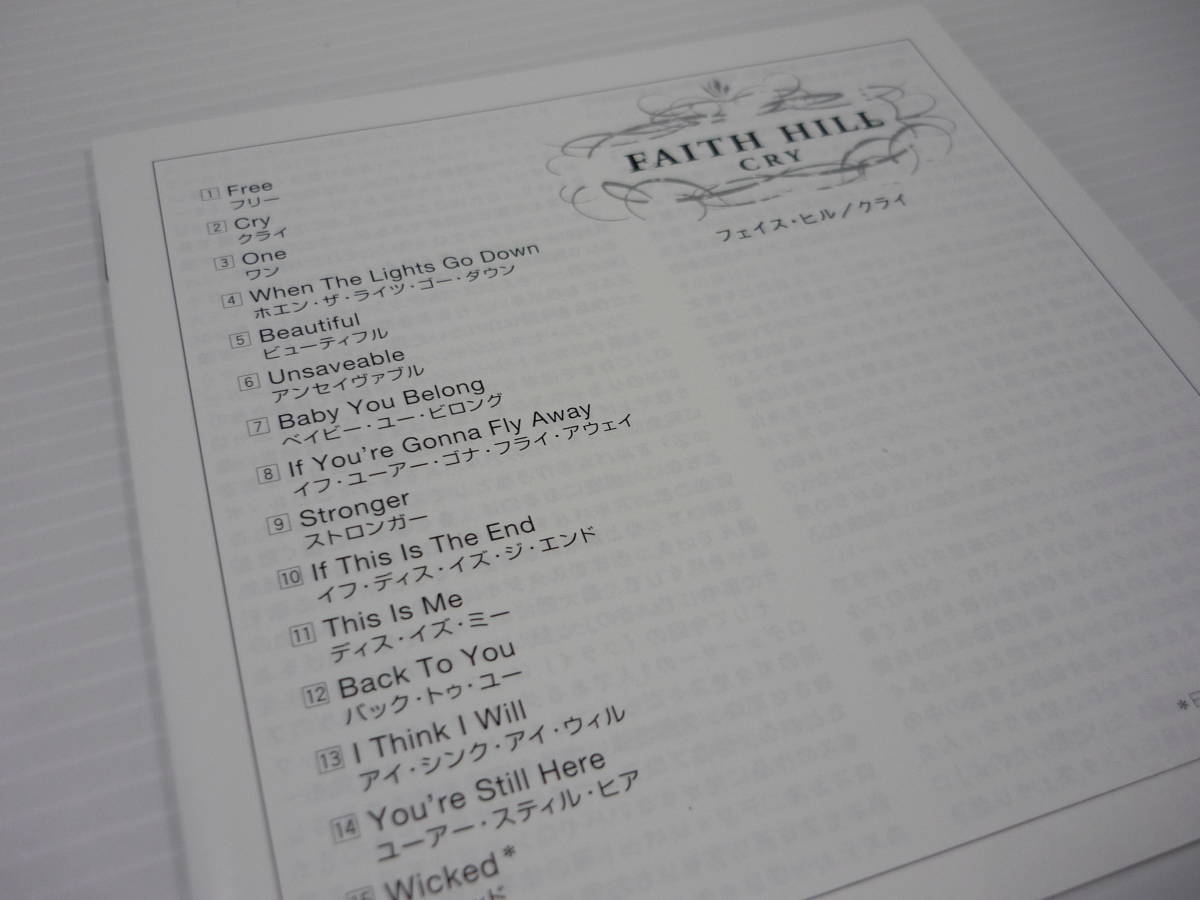 FAITH HILL
CRY
フェイス・ヒル／クライ
1 Free
フリー
2 Cry
クライ
3 One
ワン
4 When The Lights Go Down
ホエン・ザ・ライツ・ゴー・ダウン
5 Beautiful
ビューティフル
6 Unsaveable
アンセイヴァブル
7 Baby You Belong
ベイビー・ユー・ビロング
8 If You're Gonna Fly Away
イフ・ユーアー・ゴナ・フライ・アウェイ
9 Stronger
ストロンガー
10 If This Is The End
イフ・ディス・イズ・ジ・エンド
11 This Is Me
ディス・イズ・ミー
12 Back To You
バック・トゥ・ユー
13 I Think I Will
アイ・シンク・アイ・ウィル
14 You're Still Here
ユーアー・スティル・ヒア
15 Wicked*